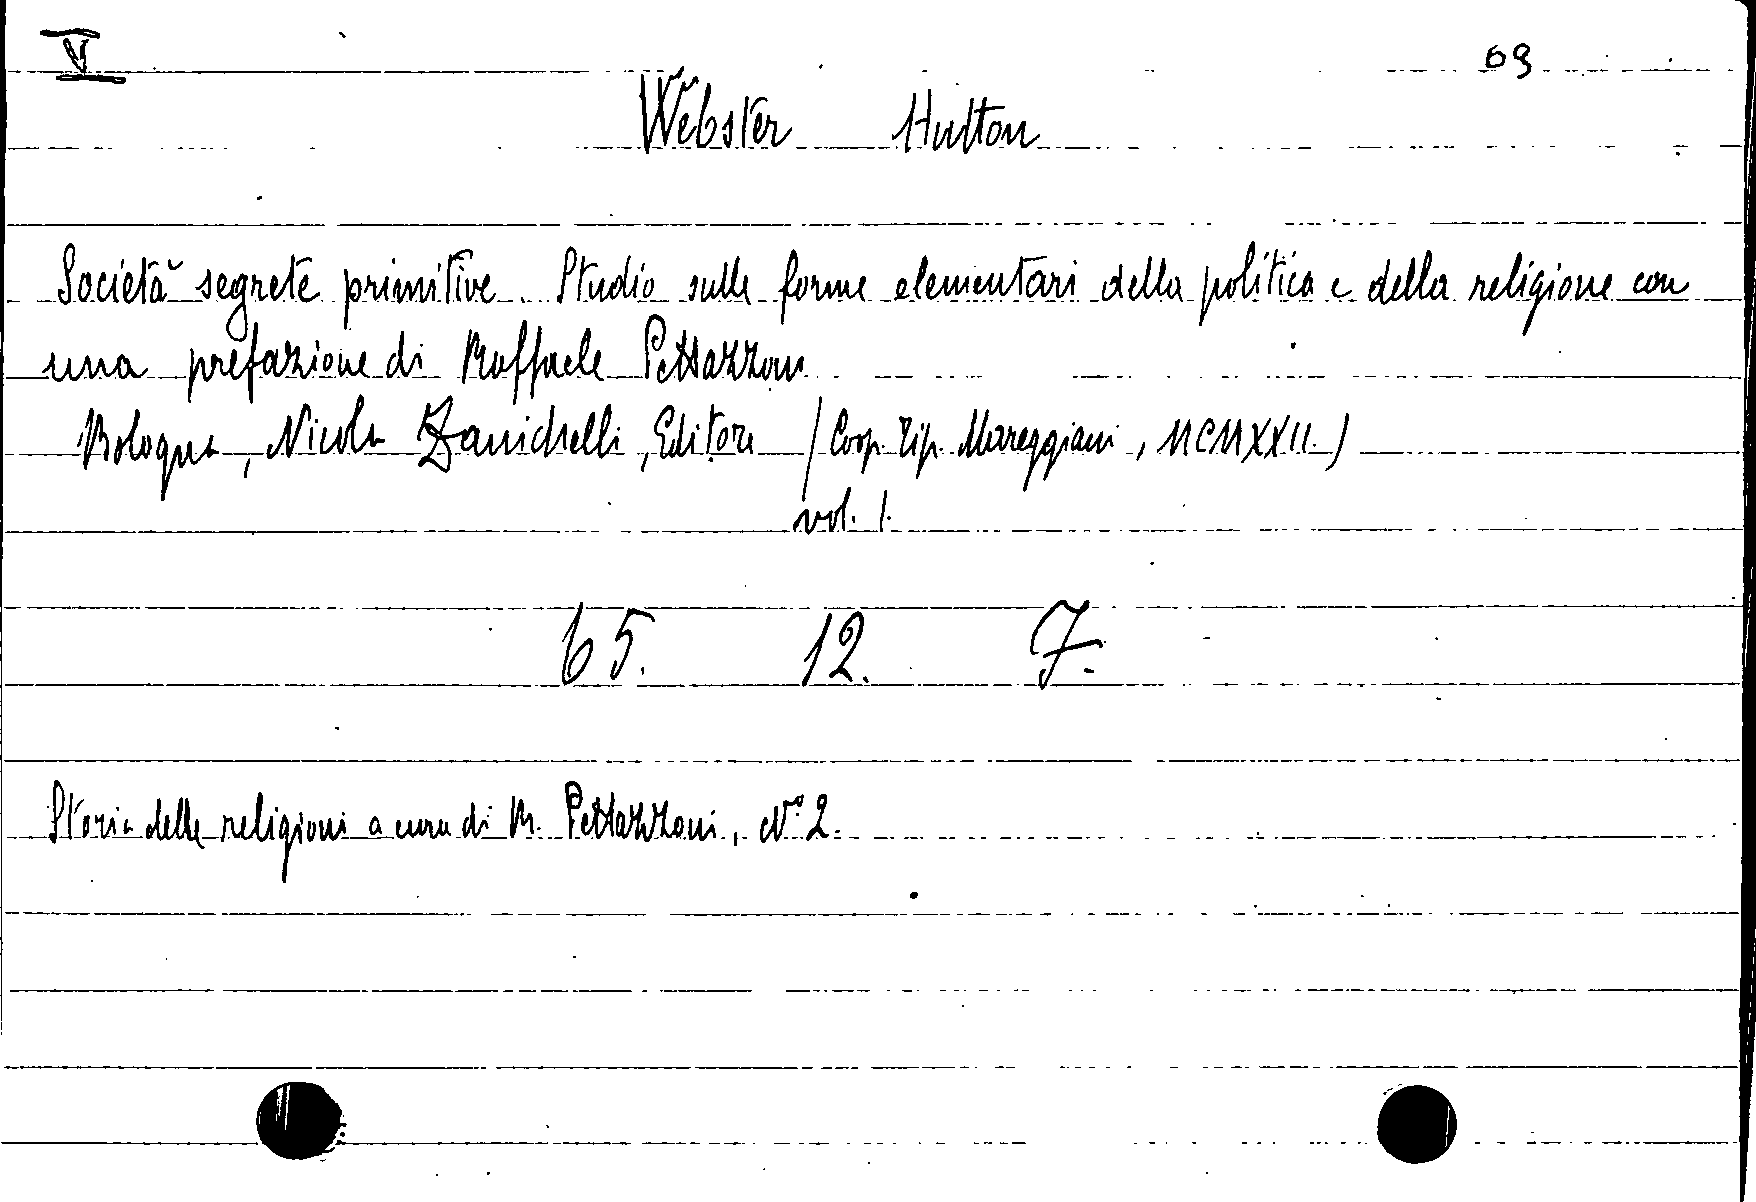 V 69
Webster Hutton
Società segrete primitive. Studio sulle forme elementari della politica e della religione con
una prefazione di Raffaele Pettazzoni
Bologna, Nicola Zanichelli, Editore (Coop. Tip. Mareggiani, MCMXXII.)
vol. 1.
65. 12. F.
Storia delle religioni a cura di R. Pettazzoni, N.° 2.